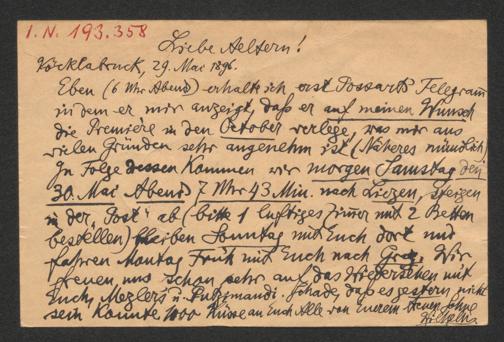 I.N. 193.358
Liebe Aeltern!
Vöcklabruck, 29. Mai 1896.
Eben (6 Uhr Abend) erhalte ich erst Possarts Telegram
in dem er mir anzeigt, daß er auf meinen Wunsch
die Première in den October verlege, was mir aus
vielen Gründen sehr angenehm ist (Näheres mündlich)
In Folge dessen kommen wir morgen Samstag den
30. Mai Abend 7 Uhr 43 Min. nach Liezen, steigen
in der "Post" ab (bitte 1 luftiges Zimmer mit 2 Betten
bestellen) bleiben Sonntag mit Euch dort und
fahren Montag Früh mit Euch nach Graz. Wir
freuen uns schon sehr auf das Wiedersehen mit
Euch, u. Schade, daß es gestern nicht
sein konnte. 1000 Küsse an Euch Alle von Eurem treuen Sohne
Wilhelm